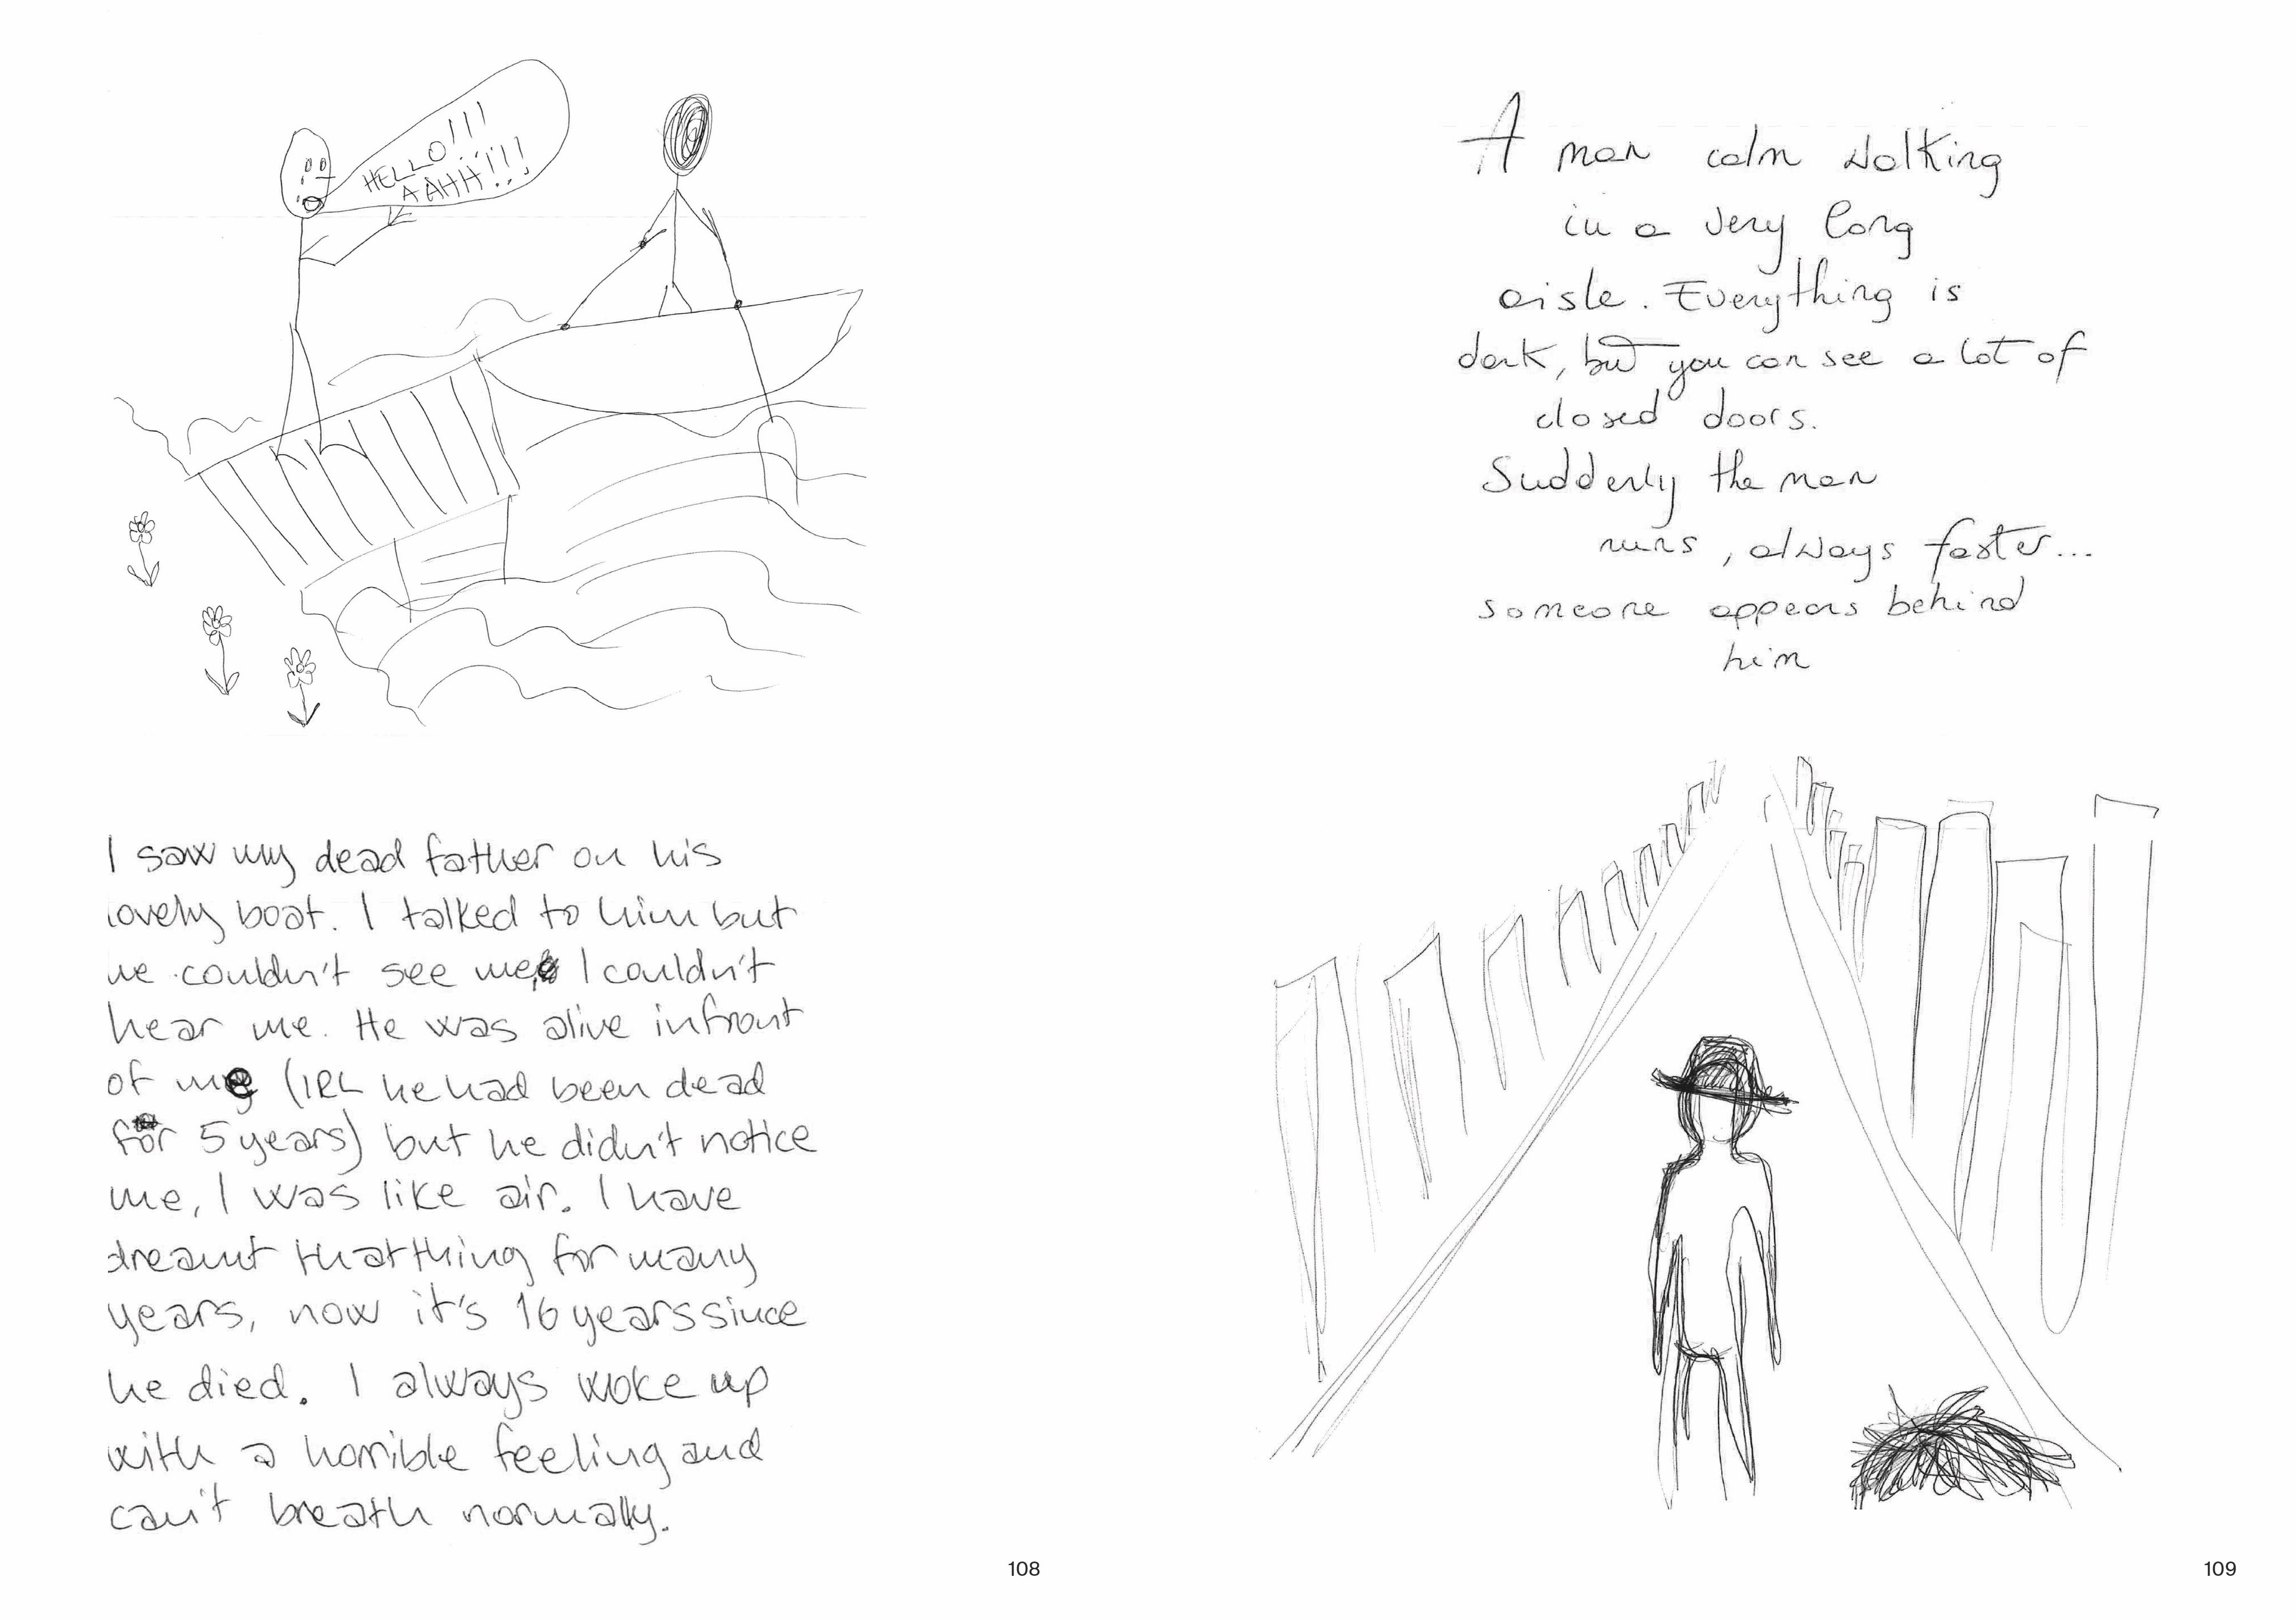 HELLO!!!
AAHH!!!!
I saw my dead father on his
lovely boat. I talked to him but
he couldn't see me, I couldn't
hear me. He was alive infront
of me (IRL he had been dead
for 5 years) but he didn't notice
me, I was like air. I have
dreamt that thing for many
years, now it's 16 years since
he died. I always woke up
with a horrible feeling and
can't breath normally.
108
A man calm walking
in a very long
aisle. Everything is
dark, but you can see a lot of
closed doors.
Suddenly the man
runs, always faster...
someone appears behind
him
109